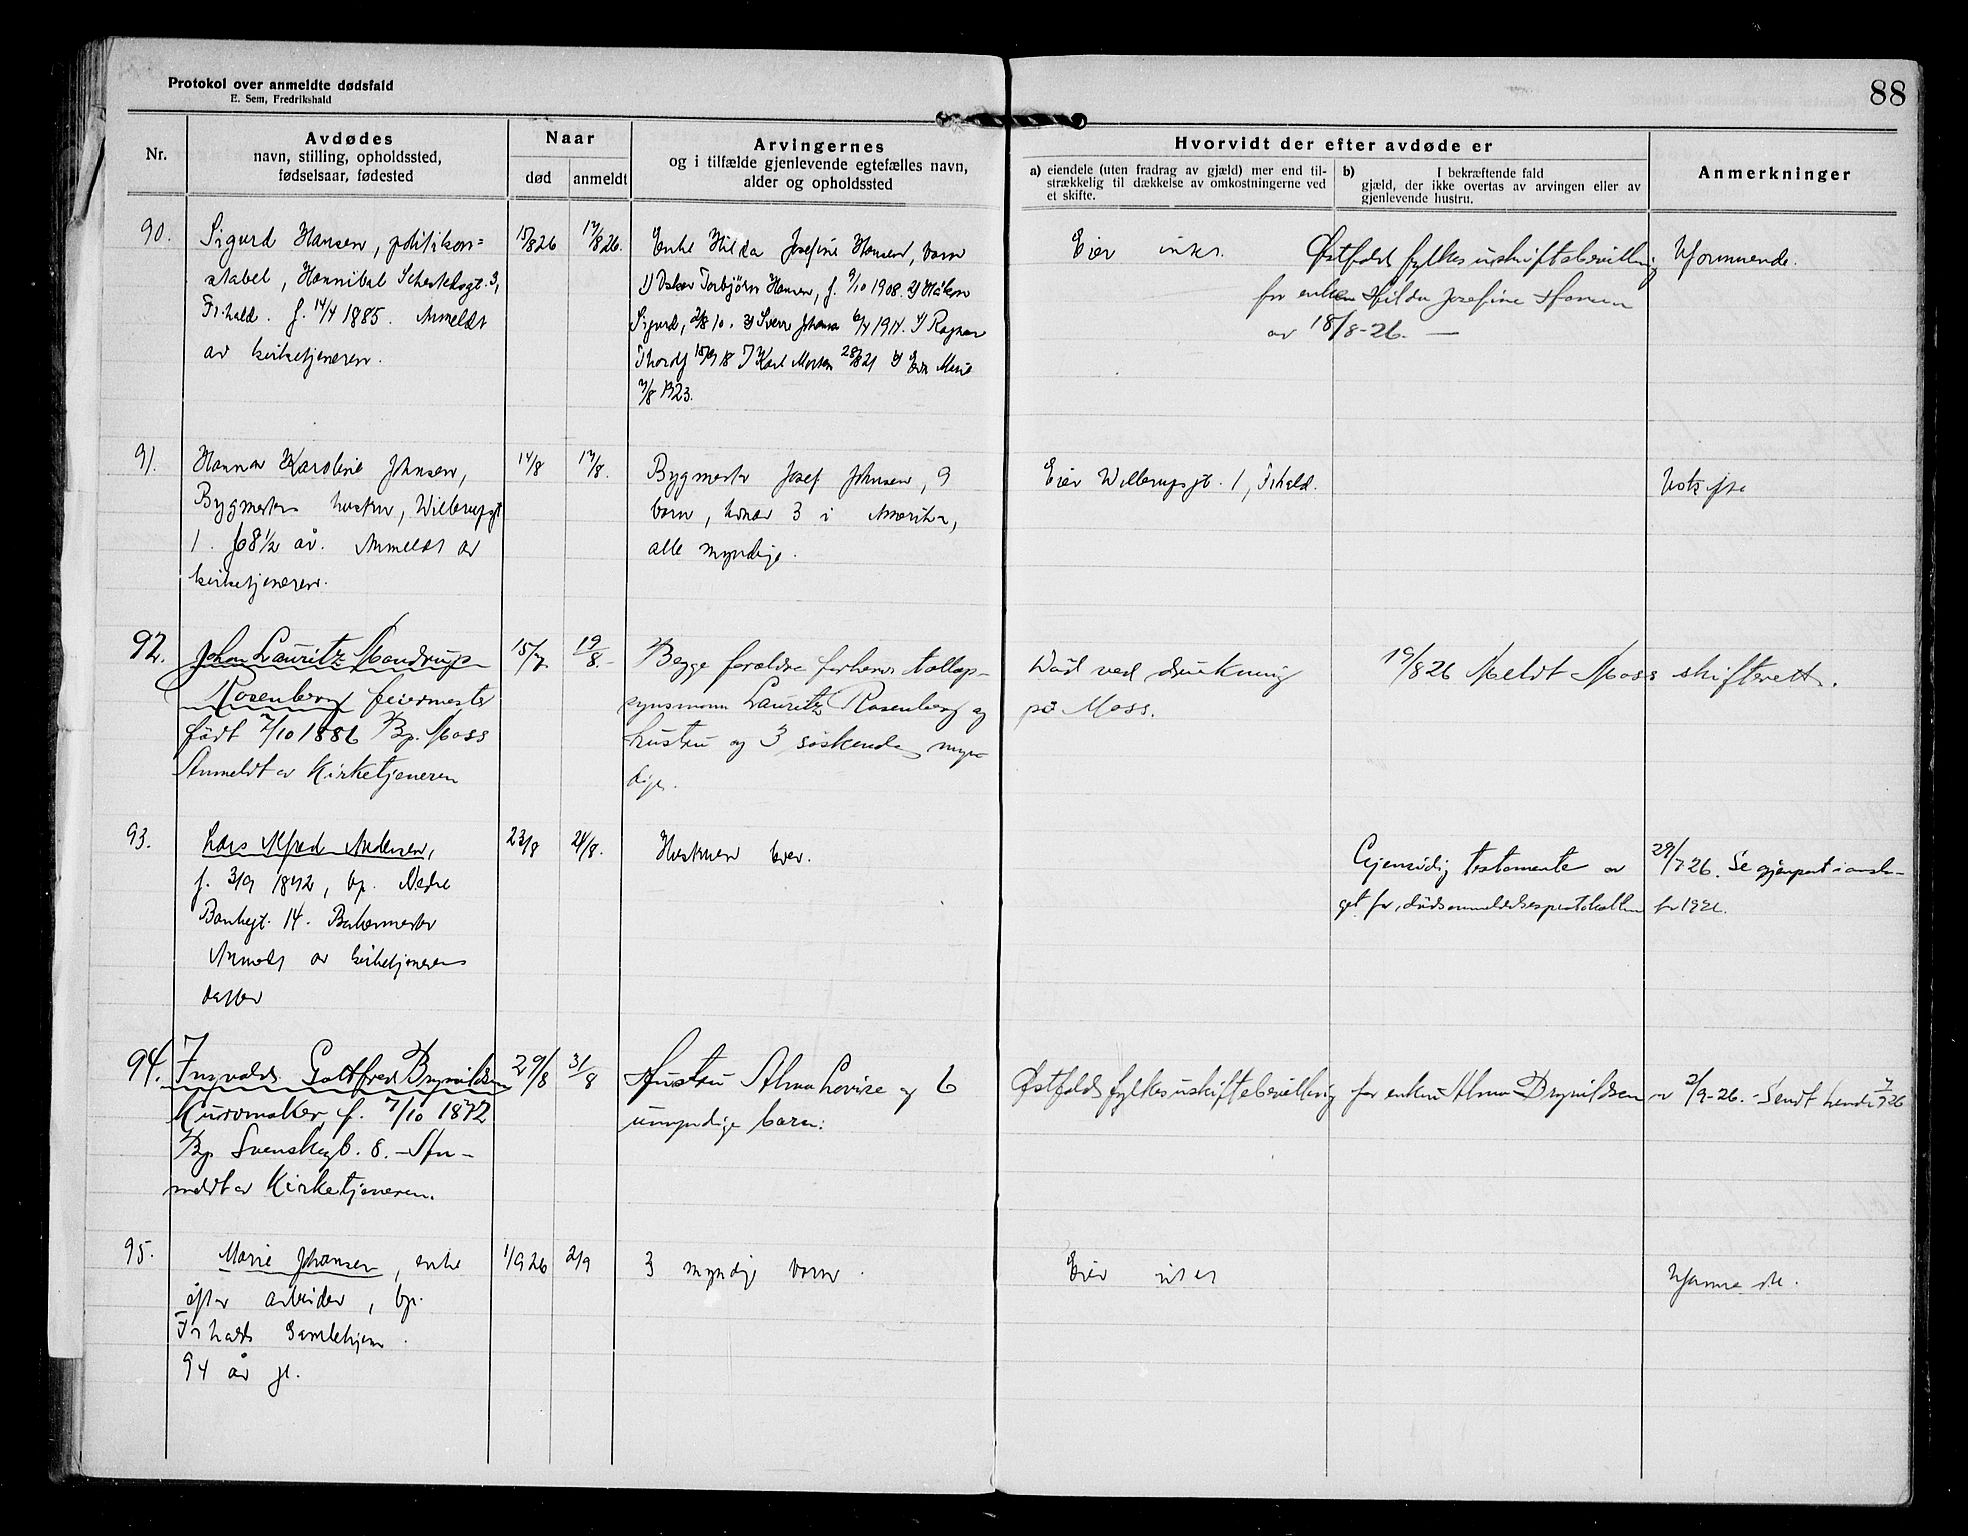 88
Protokol over anmeldte dødsfald
E. Sem, Fredrikshald
Nr.
Avdødes
navn, stilling, opholdssted,
fødselsaar, fødested
Naar
død
anmeldt
Arvingernes
og i tilfælde gjenlevende egtefælles navn,
alder og opholdssted
Hvorvidt der efter avdøde er
a) eiendele (uten fradrag av gjæld) mer end til-
strækkelig til dækkelse av omkostningerne ved
et skifte.
b) I bekræftende fald
gjæld, der ikke overtas av arvingen eller av
gjenlevende hustru.
Anmerkninger
90.
Sigurd Hansen, politikon=
stabel, Hannibal Sehestedsgt. 3,
Fr.hald. f. 14/4 1885. Anmeldt
av kirketjeneren.
15/8 26
17/8 26.
Enke Hilda Josefine Hansen, barn
1) Oskar Torbjørn Hansen, f. 9/10 1908. 2) Håkon
Sigurd, 2/8 10. 3) Sverre Johan 6/4 1914. 4) Ragnar
18 Karl Morten 28/8 21 Marie
7/8 1923.
Eier intet.
Østfold fylkes uskiftebevilling
for enken Hilda Josefine Hansen
av 18/8-26. —
Uformuende.
91.
Hanna Karoline Johnsen,
Bygmesters hustru, Willerupsgt
1. 68 1/2 år. Anmeldt av
kirketjeneren.
14/8
17/8.
Bygmester Josef Johnsen, 9
barn, hvorav 3 i Amerika,
alle myndige.
Eier Willerupsgt. 1, Frhald.
Uskifte
92.
Johan Lauritz Mandrup
Rosenberg feiermester
født 7/10 1886 Bp. Moss
Anmeldt av Kirketjeneren
15/7
19/8.-
Begge foræld​re forhenv. tollop-
synsmann Lauritz Rosenberg og
hustru og 3 søskende, myn-
dige.
Død ved drukning
på Moss.
19/8 26 Meldt Moss skifterett.
93.
Lars Alfred Andersen,
f. 3/9 1872, bp. Nedre
Bankgt. 14. Bakermester
Anmeldt av kirketjenerens
datter
23/8
24/8.
Hustruen lever.
Gjensidig testamente av 29/7 26. Se gjenpart i omsla-
get for dødsanmeldelsesprotokollen for 1926.
94.
Ingvald Gottfred Brynildsen
Kurvmaker, f. 7/10 1872
Bp Svenskegt. 8. - An-
meldt av Kirketjeneren.
29/8
31/8
Hustru Alma Lovise og 6
umyndige barn.
Østfold fylkes uskiftebevilling for enken Alma Brynildsen av 2/9-26. - Sendt hende 7/9 26
95.
Marie Johansen, enke
efter arbeider, bp.
Frhalds Gamlehjem.
94 år gl.
1/9 26
2/9
3 myndige barn.
Eier intet